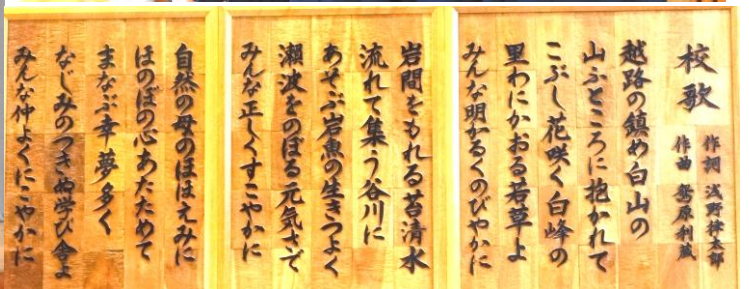 校歌
作詞 浅野律太郎
作曲 鴛原利蔵
越路の鎮め白山の
山ふところに抱かれて
こぶし花咲く白峰の
里わにかおる若草よ
みんな明かるくのびやかに
岩間をもれる苔清水
流れて集う谷川に
あそぶ岩魚の生きつよく
瀬波をのぼる元気さで
みんな正しくすこやかに
自然の母のほほえみに
ほのぼの心あたためて
まなぶ幸夢多く
なじみのつきぬ学び舎よ
みんな仲よくにこやかに